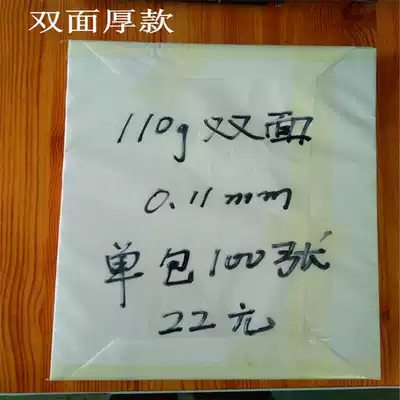 双面厚款
110g双面
0.11mm
单包100张
22元